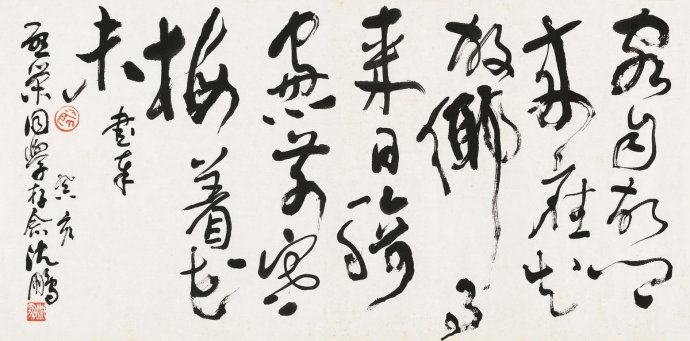 君自故鄉
来應知
故鄉事
来日綺
窗前寒
梅着花
未
書奉
榮同學存念沈鵬
癸亥